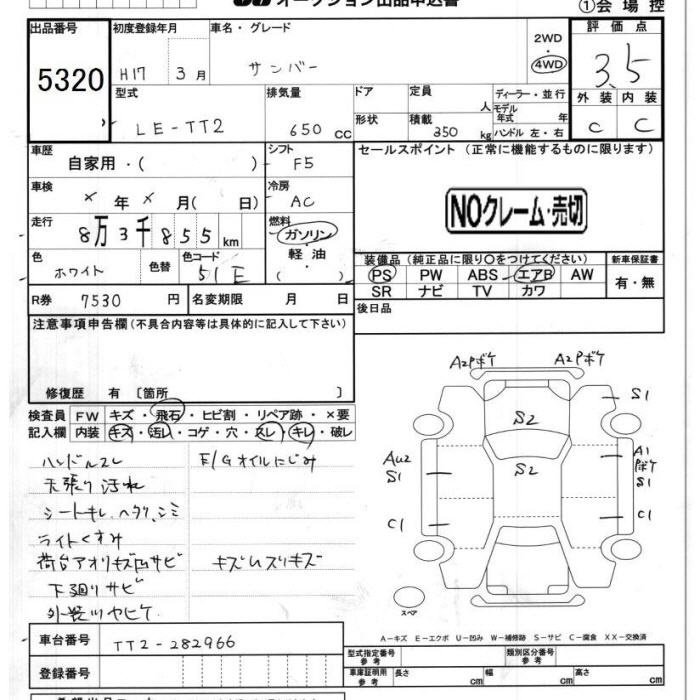 オークション出品申込書
①会場控
出品番号
5320
初度登録年月
H17 3月
車名・グレード
サンバー
2WD
・
4WD
評価点
3.5
型式
LE-TT2
排気量
650 cc
ドア
形状
定員
人
積載
350 kg
ディーラー・並行
モデル年式 年
ハンドル 左・右
外装 内装
C C
車歴
自家用・( )
シフト
F5
セールスポイント (正常に機能するものに限ります)
車検
× 年 × 月( 日)
冷房
AC
NOクレーム・売切
走行
8万3千855km
燃料
ガソリン
・
軽油
( )
色
ホワイト
色替
色コード
51E
装備品(純正品に限り○をつけてください)
PS PW ABS エアB AW
SR ナビ TV カワ
新車保証書
有・無
R券 7530 円
名変期限 月 日
後日品
注意事項申告欄(不具合内容等は具体的に記入して下さい)
修復歴 有 〔箇所 〕
検査員記入欄
FW キズ・飛石・ヒビ割・リペア跡・×要
内装 キズ・汚レ・コゲ・穴・スレ・キレ・破レ
ハンドルスレ
天張り汚れ
シートキレ、ヘタリ、シミ
ライトくすみ
荷台アオリキズ凹サビ
下廻りサビ
外装ツヤビケ
E/Gオイルにじみ
キズムスリキズ
A2Pボケ A2Pボケ
S1
S2
S2
AU2
S1
A1
Pボケ
S1
C1
C1
スペア
A-キズ E-エクボ U-凹み W-補修跡 S-サビ C-腐食 XX-交換済
車台番号
TT2-282966
登録番号
型式指定番号
参考
類別区分番号
参考
車庫証明用
参考
長さ cm
幅 cm
高さ cm